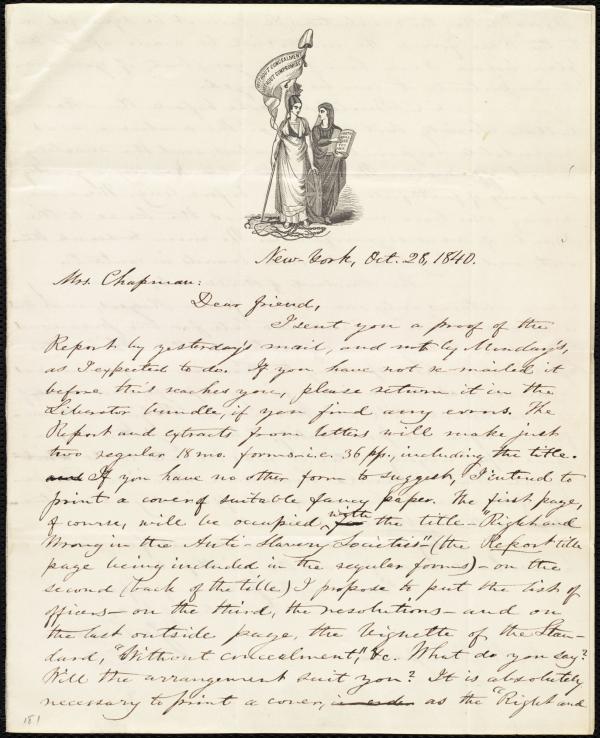 WITHOUT CONCEALMENT
WITHOUT COMPROMISE
New-York, Oct. 28, 1840.
Mrs. Chapman:
Dear friend,
I sent you a proof of the
Report by yesterday's mail, and not by Monday's,
as I expected to do. If you have not re-mailed it
before this reaches you, please return it in the
Liberator bundle, if you find any errors. The
Report and extracts from letters will make just
two regular 18 mo. forms—i.e. 36 pp., including the title.
and If you have no other form to suggest, I intend to
print a cover of suitable fancy paper. The first page,
of course, will be occupied with for the title—"Right and
Wrong in the Anti-Slavery Societies"—(the Report title
page being included in the regular forms)—on the
second (back of the title) I propose to put the list of
officers—on the third, the resolutions—and on
the last outside page, the vignette of the Stan-
dard, "Without concealment," &c. What do you say?
Will the arrangement suit you? It is absolutely
necessary to print a cover, in order as the "Right and
181